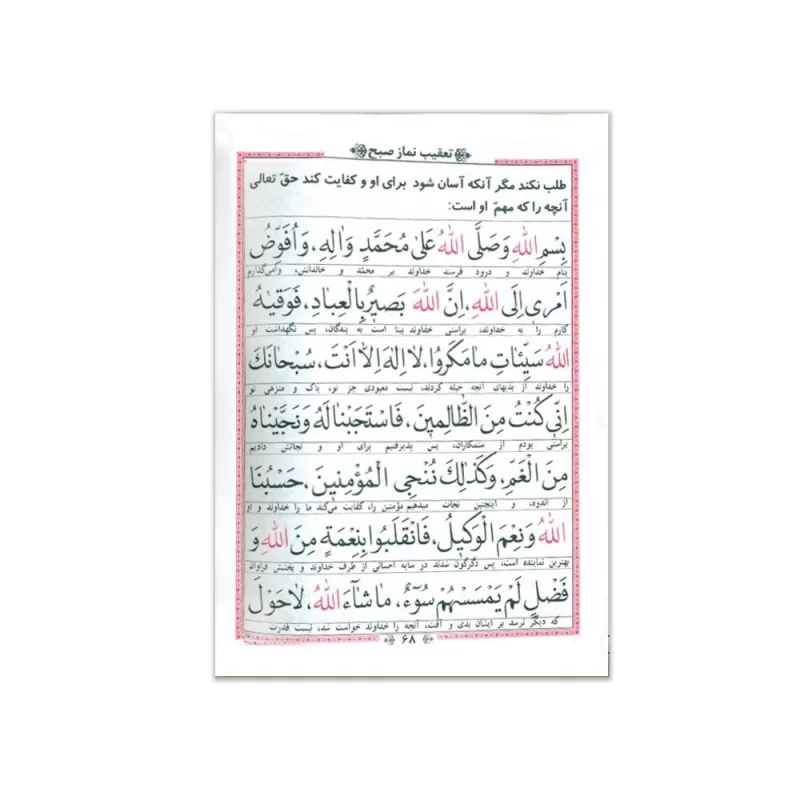 تعقیب نماز صبح
طلب نکند مگر آنکه آسان شود برای او و کفایت کند حقّ تعالی
آنچه را که مهمّ او است:
بِسْمِ اللهِ وَصَلَّی اللهُ عَلیٰ مُحَمَّدٍ وَاٰلِهِ، وَاُفَوِّضُ
بنام خداوند و درود فرستد خداوند بر محمّد و خاندانش، وامی‌گذارم
اَمْری اِلَی اللهِ، اِنَّ اللهَ بَصیرٌ بِالْعِبادِ، فَوَقیٰهُ
کارم را به خداوند، براستی خداوند بینا است به بندگان، پس نگهداشت او
اللهُ سَیِّئاتِ ما مَکَرُوا، لا اِلهَ اِلاّ اَنْتَ، سُبْحانَکَ
را خداوند از بدیهای آنچه حیله کردند، نیست معبودی جز تو، پاک و منزهی تو
اِنّی کُنْتُ مِنَ الظّالِمینَ، فَاسْتَجَبْنا لَهُ وَنَجَّیْناهُ
براستی بودم از ستمکاران، پس پذیرفتیم برای او و نجاتش دادیم
مِنَ الْغَمِّ، وَکَذٰلِکَ نُنْجِی الْمُؤْمِنینَ، حَسْبُنَا
از اندوه، و اینچنین نجات میدهیم مؤمنین را، کفایت می‌کند ما را خداوند و او
اللهُ وَنِعْمَ الْوَکیلُ، فَانْقَلَبُوا بِنِعْمَةٍ مِنَ اللهِ وَ
بهترین نماینده است، پس دگرگون شدند در سایه احسانی از طرف خداوند و بخشش فراوان
فَضْلٍ لَمْ یَمْسَسْهُمْ سُوٓءٌ، ما شآءَ اللهُ، لا حَوْلَ
که دیگر نرسد بر ایشان بدی و آفت، آنچه را خداوند خواست شد، نیست قدرت
۶۸